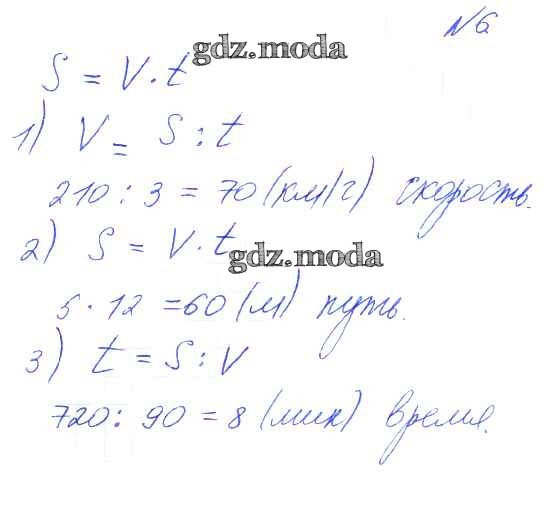 №6
gdz.moda
S = V · t
1) V = S : t
210 : 3 = 70 (км/г) скорость.
2) S = V · t
gdz.moda
5 · 12 = 60 (м) путь.
3) t = S : V
720 : 90 = 8 (мин) время.